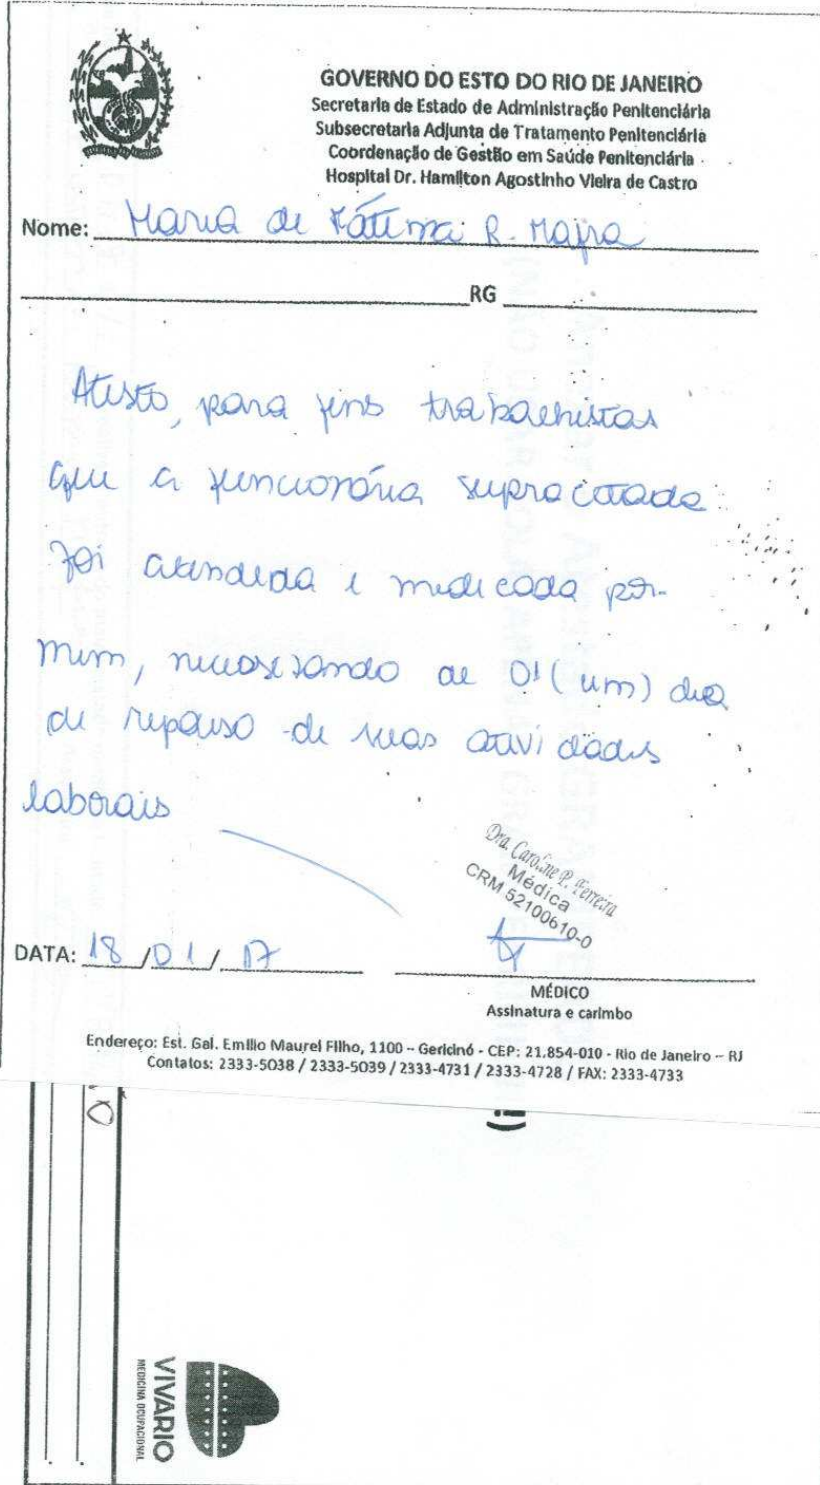 GOVERNO DO ESTO DO RIO DE JANEIRO
Secretaria de Estado de Administração Penitenciária
Subsecretaria Adjunta de Tratamento Penitenciária
Coordenação de Gestão em Saúde Penitenciária
Hospital Dr. Hamilton Agostinho Vieira de Castro
Nome: Maria de Fátima R.
RG
Atesto, para fins trabalhistas
que a funcionária supracitada
foi atendida e medicada por
mim, necessitando de 01 (um) dia
de repouso de suas atividades
laborais
Dra. Caroline P. Ferreira
Médica
CRM 52100610-0
DATA: 18/01/17
MÉDICO
Assinatura e carimbo
Endereço: Est. Gal. Emilio Maurel Filho, 1100 – Gericinó - CEP: 21.854-010 - Rio de Janeiro – RJ
Contatos: 2333-5038 / 2333-5039 / 2333-4731 / 2333-4728 / FAX: 2333-4733
VIVARIO
MEDICINA OCUPACIONAL